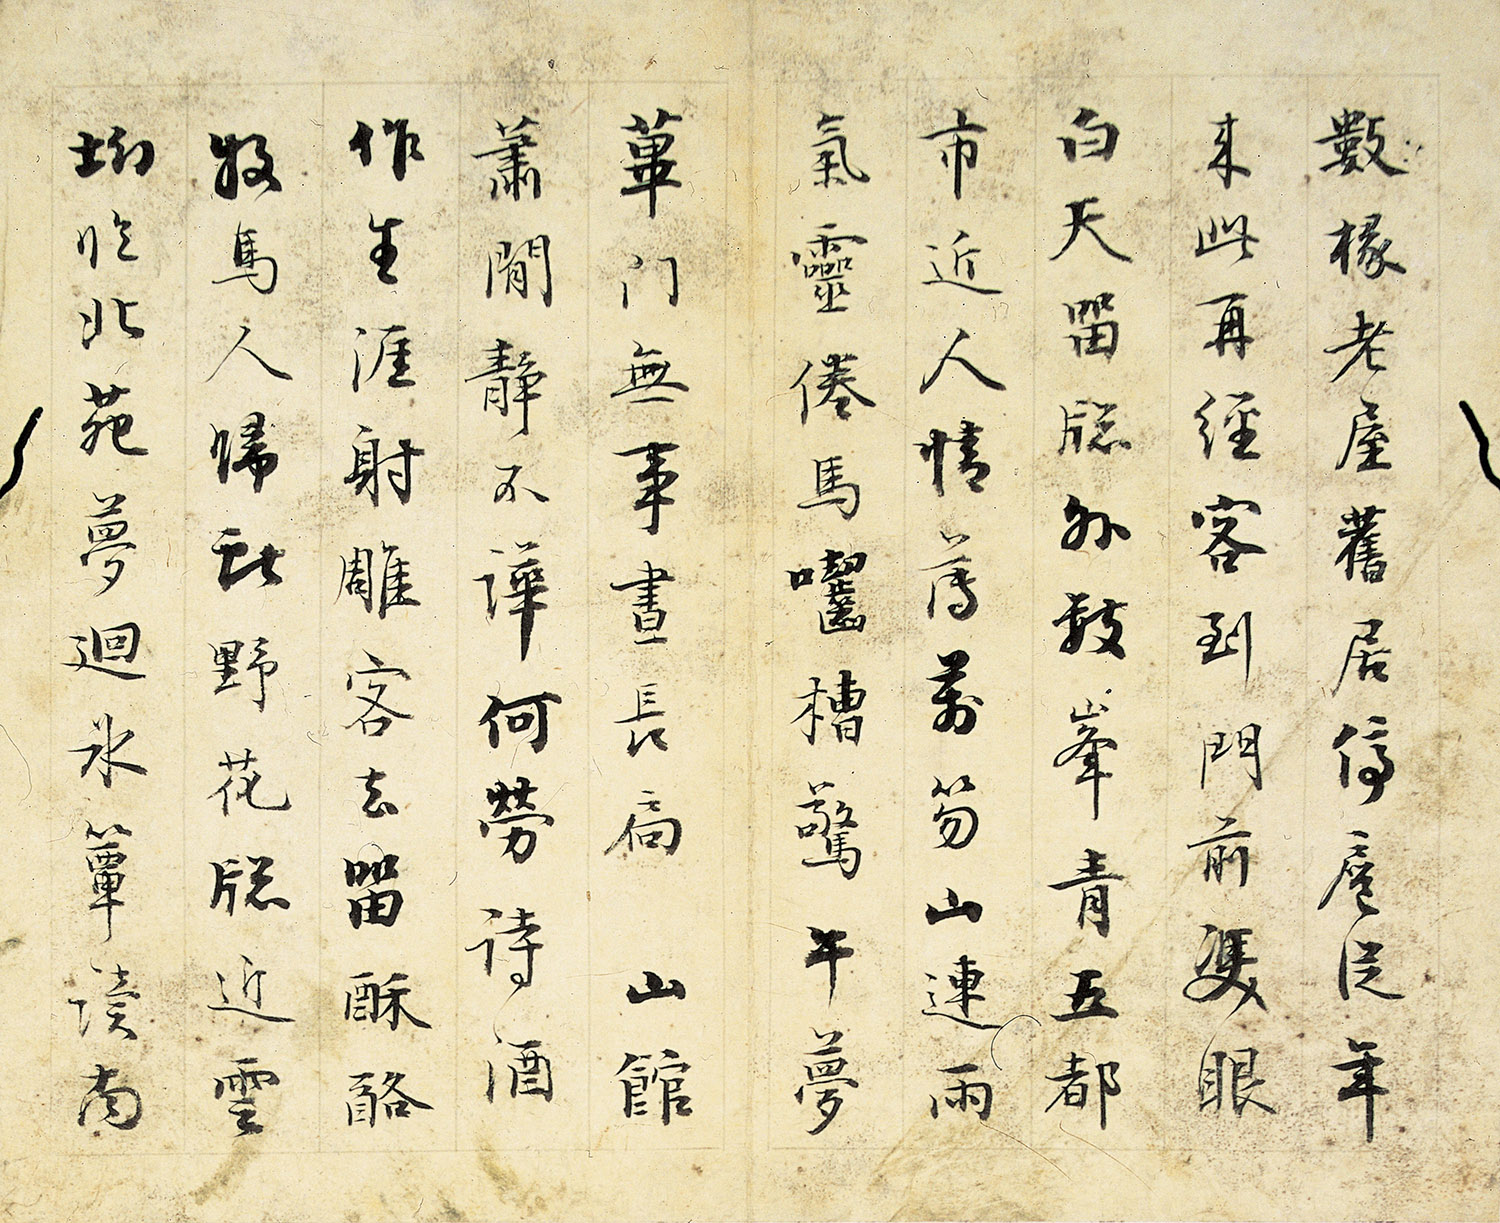 數椽老屋舊居停扈從年
來此再經客到門前雙眼
白天畱牕外數峯青五都
市近人情薄萬笏山連雨
氣靈倦馬囓槽驚午夢
蓽門無事晝長扃 山館
蕭閒靜不譁何勞詩酒
作生涯射雕客去畱酥酪
牧馬人歸野花牕近雲
坳臨北苑夢迴氷簟讀南